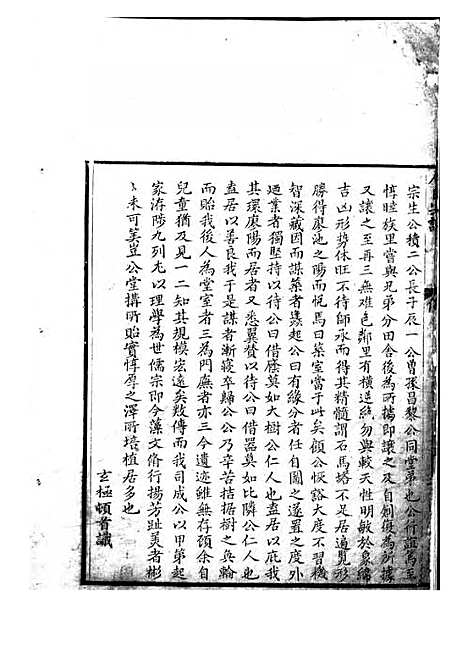 宗生公積二公長子辰一公曾孫昌黎公同堂弟也公行誼為至
惇睦族里嘗與兄弟分田舍後為所攘即讓之及自創復為所據
又讓之至再三無難色鄰里有橫逆絶勿與較天性明敏於象緯
吉凶形勢休旺不待師承而得其精髓謂石馬塔不足居遍覓形
勝得廖池之陽而悅焉曰築室當于此矣顧公恢谿大度不習機
智深藏因而謀築者蠭起公曰有緣分者任自圖之遂置之度外
廼業者獨堅持以待公曰借廕莫如大樹公仁人也盍居以庇我
其環廖陽而居者又悉翼贊以待公曰借器莫如比隣公仁人也
盍居以善良我于是謀者漸寢卒歸公公乃辛苦拮据樹之奐輪
而貽我後人為堂室者三為門廡者亦三今遺迹雖無存顧余自
兒童猶及見一二知其規模宏遠矣數傳而我司成公以甲第起
家洊陟九列尤以理學為世儒宗即今藻文脩行揚芳趾美者彬
彬未可量豈公堂搆所貽實惇厚之澤所培植居多也
玄極頓首識